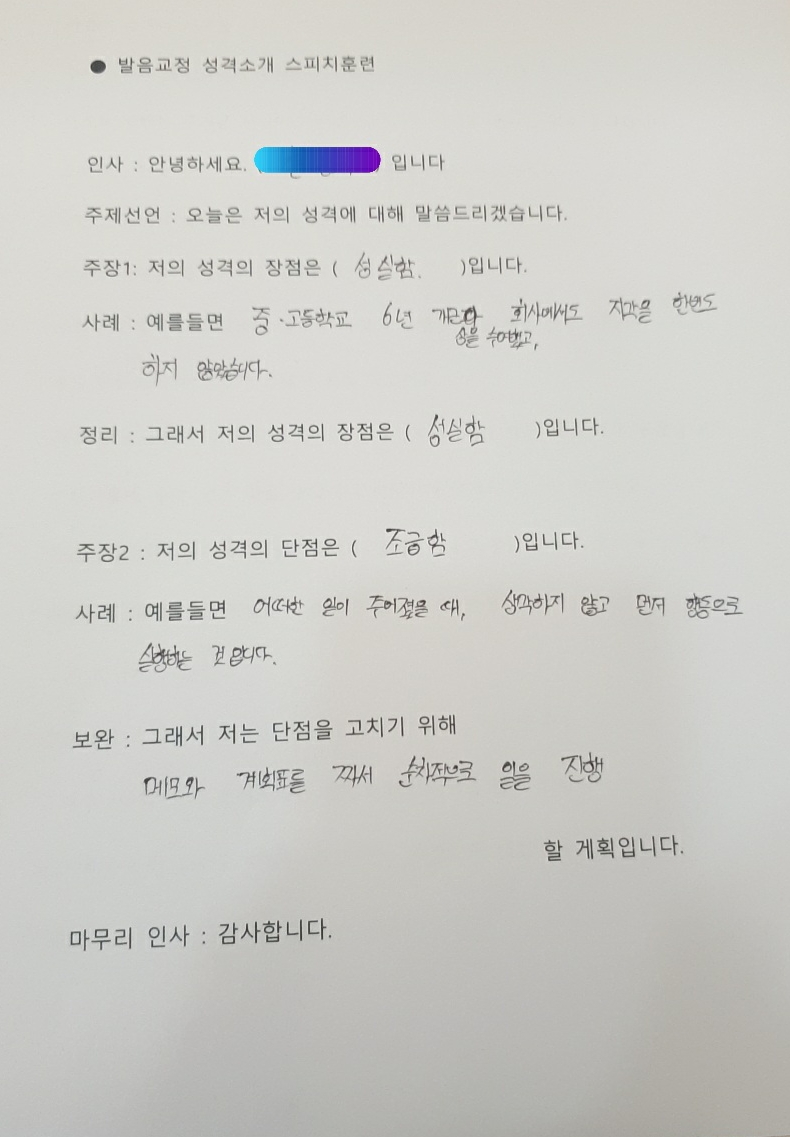 ● 발음교정 성격소개 스피치훈련
인사 : 안녕하세요. 입니다
주제선언 : 오늘은 저의 성격에 대해 말씀드리겠습니다.
주장1: 저의 성격의 장점은 ( 성실함. )입니다.
사례 : 예를들면 중·고등학교 6년 개근 회사에서도 지각을 한번도
상을 수여했고,
하지 않았습니다.
정리 : 그래서 저의 성격의 장점은 ( 성실함 )입니다.
주장2 : 저의 성격의 단점은 ( 조급함 )입니다.
사례 : 예를들면 어떠한 일이 주어졌을 때, 생각하지 않고 먼저 행동으로
실행하는 것 입니다.
보완 : 그래서 저는 단점을 고치기 위해
메모와 계획표를 짜서 순차적으로 일을 진행
할 게획입니다.
마무리 인사 : 감사합니다.